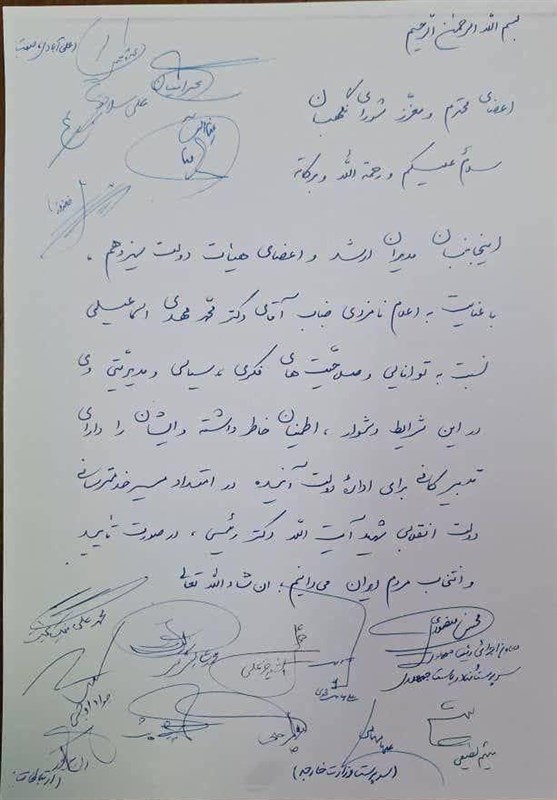 بسم الله الرحمن الرحیم
اعضای محترم و معزز شورای نگهبان
سلام علیکم و رحمة الله و برکاته
اینجانبان مدیران ارشد و اعضای هیأت دولت سیزدهم،
با عنایت به اعلام نامزدی جناب آقای دکتر محمد مهدی اسماعیلی
نسبت به توانایی و صلاحیت های فکری، سیاسی و مدیریتی وی
در این شرایط دشوار، اطمینان خاطر داشته و ایشان را دارای
تدبیر کافی برای ادارهٔ دولت آینده در امتداد مسیر خدمتگزاری
دولت انقلابی شهید آیت الله دکتر رئیسی، در صورت تأیید
و انتخاب مردم ایران می‌دانیم، ان شاء الله تعالی
محسن منصوری
معاون اجرایی رئیس جمهور
سرپرست نهاد ریاست جمهوری
میثم لطیفی
(سرپرست وزارت خارجه)
بحرانی
علی سلاجقه
جواد اوجی